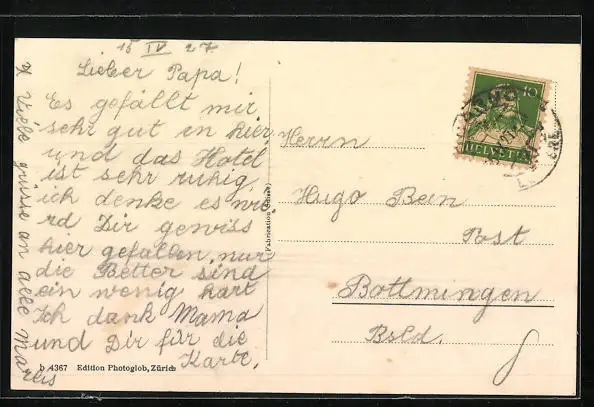 15 IV 27
Lieber Papa!
Es gefällt mir
sehr gut in hier
und das Hotel
ist sehr ruhig,
ich denke es wie
rd Dir gewiss
hier gefallen, nur
die Better sind
ein wenig hart
Ich dank Mama
und Dir für die
Karte.
x Viele grüsse an alle Mareis
Herrn
Hugo Bein
Post
Bottmingen
Bsld.
10
HELVETIA
b 4367 Edition Photoglob, Zürich